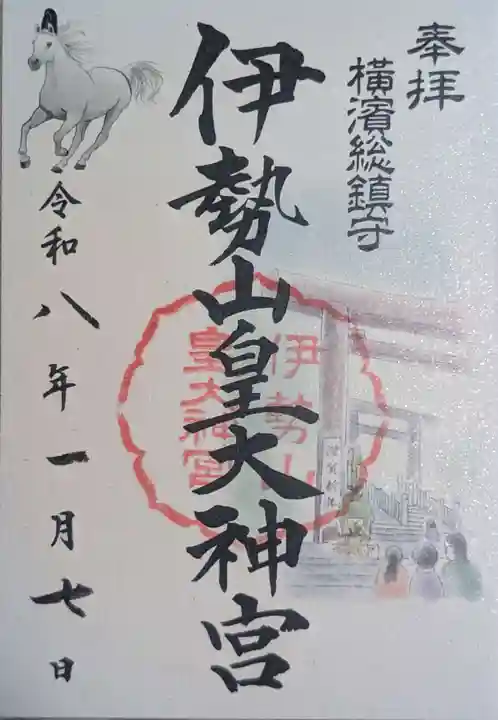 奉拝
横濱総鎮守
伊勢山皇大神宮
伊勢山
皇大神宮
謹賀新年
令和八年一月七日